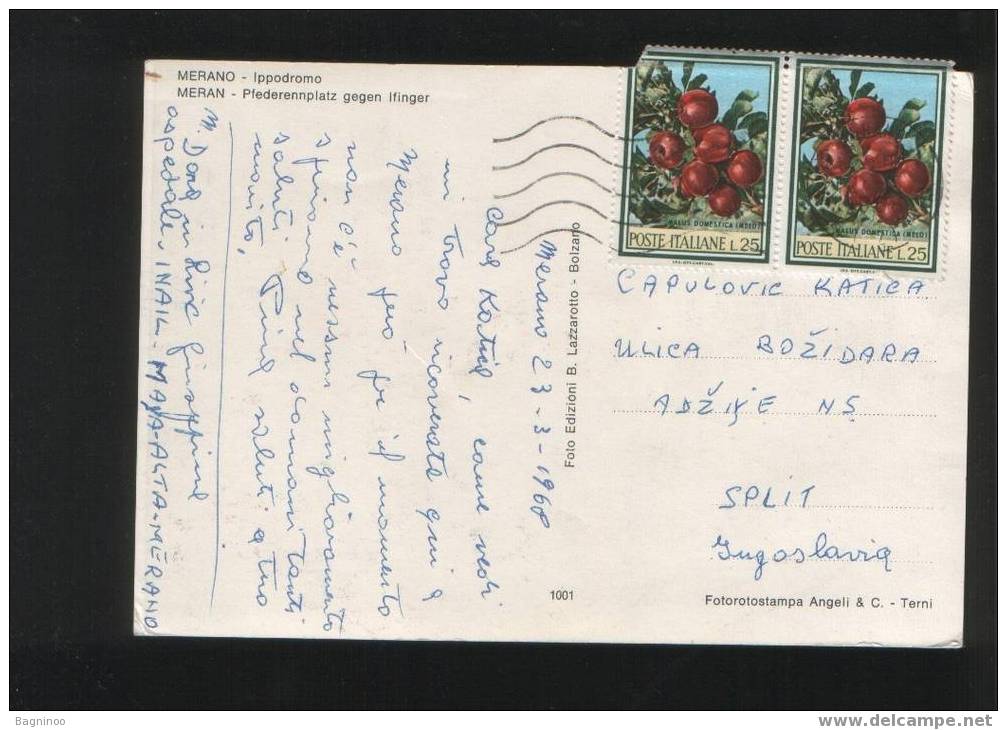 MERANO - Ippodromo
MERAN - Pfederennplatz gegen Ifinger
Merano 23-3-1968
Cara Katica, come vedi
mi trovo ricoverata qui a
Merano però per il momento
non c'è nessun miglioramento
speriamo nel domani tanti
saluti
saluti a tuo
marito,
giuseppina
ospedale INAIL - MAJA-ALTA-MERANO
Foto Edizioni B. Lazzarotto - Bolzano
1001
MALUS DOMESTICA (MELO)
POSTE ITALIANE L.25
MALUS DOMESTICA (MELO)
POSTE ITALIANE L.25
CAPULOVIC KATICA
ULICA BOŽIDARA
ADŽIJE N5
SPLIT
Jugoslavia
Fotorotostampa Angeli & C. - Terni
Bagninoo
www.delcampe.net